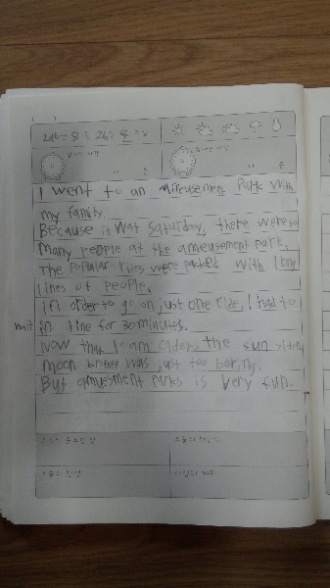 I went to an amreusement park with
my family.
Because it was Saturday, there were so
many people at the ameusement park.
The popular rides were packed with long
lines of people.
In order to go on just one ride, I had to
wait in line for 30 minutes.
Now that I am older, the sun sister
moon brother was just too boring.
But amusment parks is very fun.